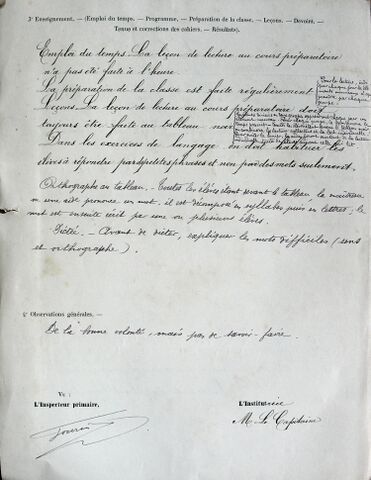 3° Enseignement. — (Emploi du temps. — Programme. — Préparation de la classe. — Leçons. — Devoirs. —
Tenue et corrections des cahiers. — Résultats).
Emploi du temps. La leçon de lecture au cours préparatoire
n'a pas été faite à l'heure.
La préparation de la classe est faite régulièrement
Leçons. La leçon de lecture au cours préparatoire doit
toujours être faite au tableau noir
Dans les exercices de langage, on doit habituer les
élèves à répondre par des petites phrases et non par des mots seulement.
Orthographe au tableau. — Toutes les élèves étant devant le tableau, la maîtresse
ou une aide prononce un mot. Il est décomposé en syllabes puis en lettres; le
mot est ensuite écrit par une ou plusieurs élèves.
Dictée. — Avant de dicter, expliquer les mots difficiles (sens
et orthographe).
4° Observations générales. —
De la bonne volonté, mais pas de savoir-faire.
Vu :
L'Inspecteur primaire,
L'Institutrice
M. Le Capitaine